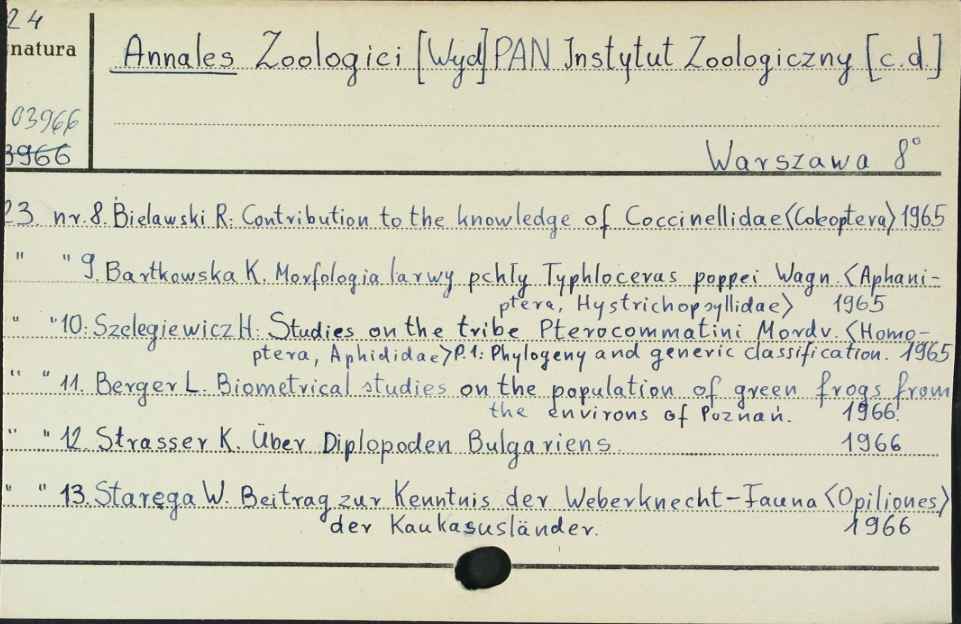 24
natura
03966
3966
Annales Zoologici [Wyd] PAN Instytut Zoologiczny [c.d.]
Warszawa 8°
23. nr. 8. Bielawski R: Contribution to the knowledge of Coccinellidae <Coleoptera> 1965
" " 9. Bartkowska K. Morfologia larwy pchły Typhloceras poppei Wagn. <Aphani-
ptera, Hystrichopsyllidae> 1965
" " 10: Szelegiewicz H: Studies on the tribe Pterocommatini Mordv. <Homo-
ptera, Aphididae> P. 1: Phylogeny and generic classification. 1965
" " 11. Berger L. Biometrical studies on the population of green frogs from
the environs of Poznań. 1966.
" " 12. Strasser K. Über Diplopoden Bulgariens. 1966
" " 13. Staręga W. Beitrag zur Kenntnis der Weberknecht-Fauna <Opiliones>
der Kaukasusländer. 1966